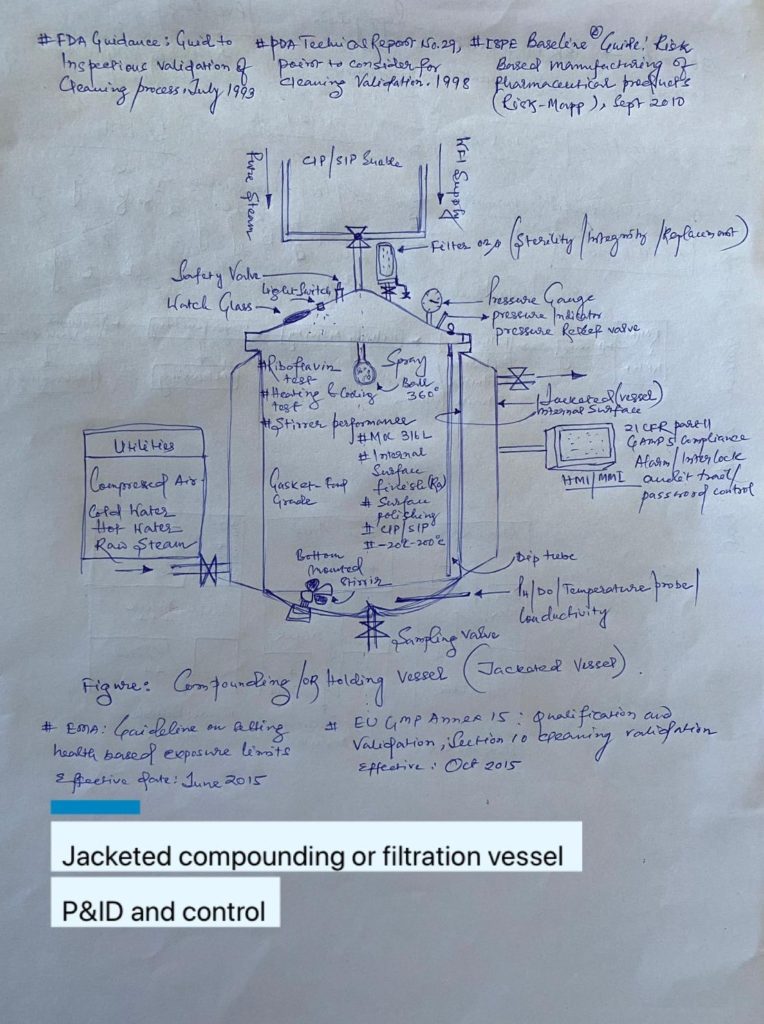 # FDA Guidance: Guid to
Inspections validation of
Cleaning process, July 1993
# PDA Technical Report No. 29,
point to consider for
cleaning Validation. 1998
# ISPE Baseline ® Guide: Risk
Based manufacturing of
pharmaceutical products
(Risk-Mapp), Sept 2010
Pure Steam
CIP/SIP Suable
WFI Supply
Filter 0.2 (Sterility/Integrity/Replacement)
Safety Valve
Light Switch
Watch Glass
Pressure Gauge
pressure Indicator
pressure Relief valve
# Riboflavin
test
# Heating & Cooling
test
# Stirrer performance
Spray
Ball
360°
# MOC 316L
# Internal
Surface
finish (Ra)
# Surface
polishing
# CIP/SIP
# -20°C-200°C
Gasket Food
Grade
Jacketed (vessel)
internal Surface
21 CFR part 11
GAMP 5 Compliance
Alarm/Interlock
audit trail/
password control
HMI/MMI
Utilities
Compressed Air
Cold Water
Hot Water
Raw Steam
Bottom
mounted
Stirrer
Dip tube
PH/DO/Temperature/probe/
Conductivity
Sampling Valve
Figure: Compounding/OR Holding Vessel (Jacketed Vessel).
# EMA: Guideline on setting
health based exposure limits
Effective date: June 2015
# EU GMP Annex 15: Qualification and
Validation, Section 10 cleaning validation
Effective: Oct 2015
Jacketed compounding or filtration vessel
P&ID and control